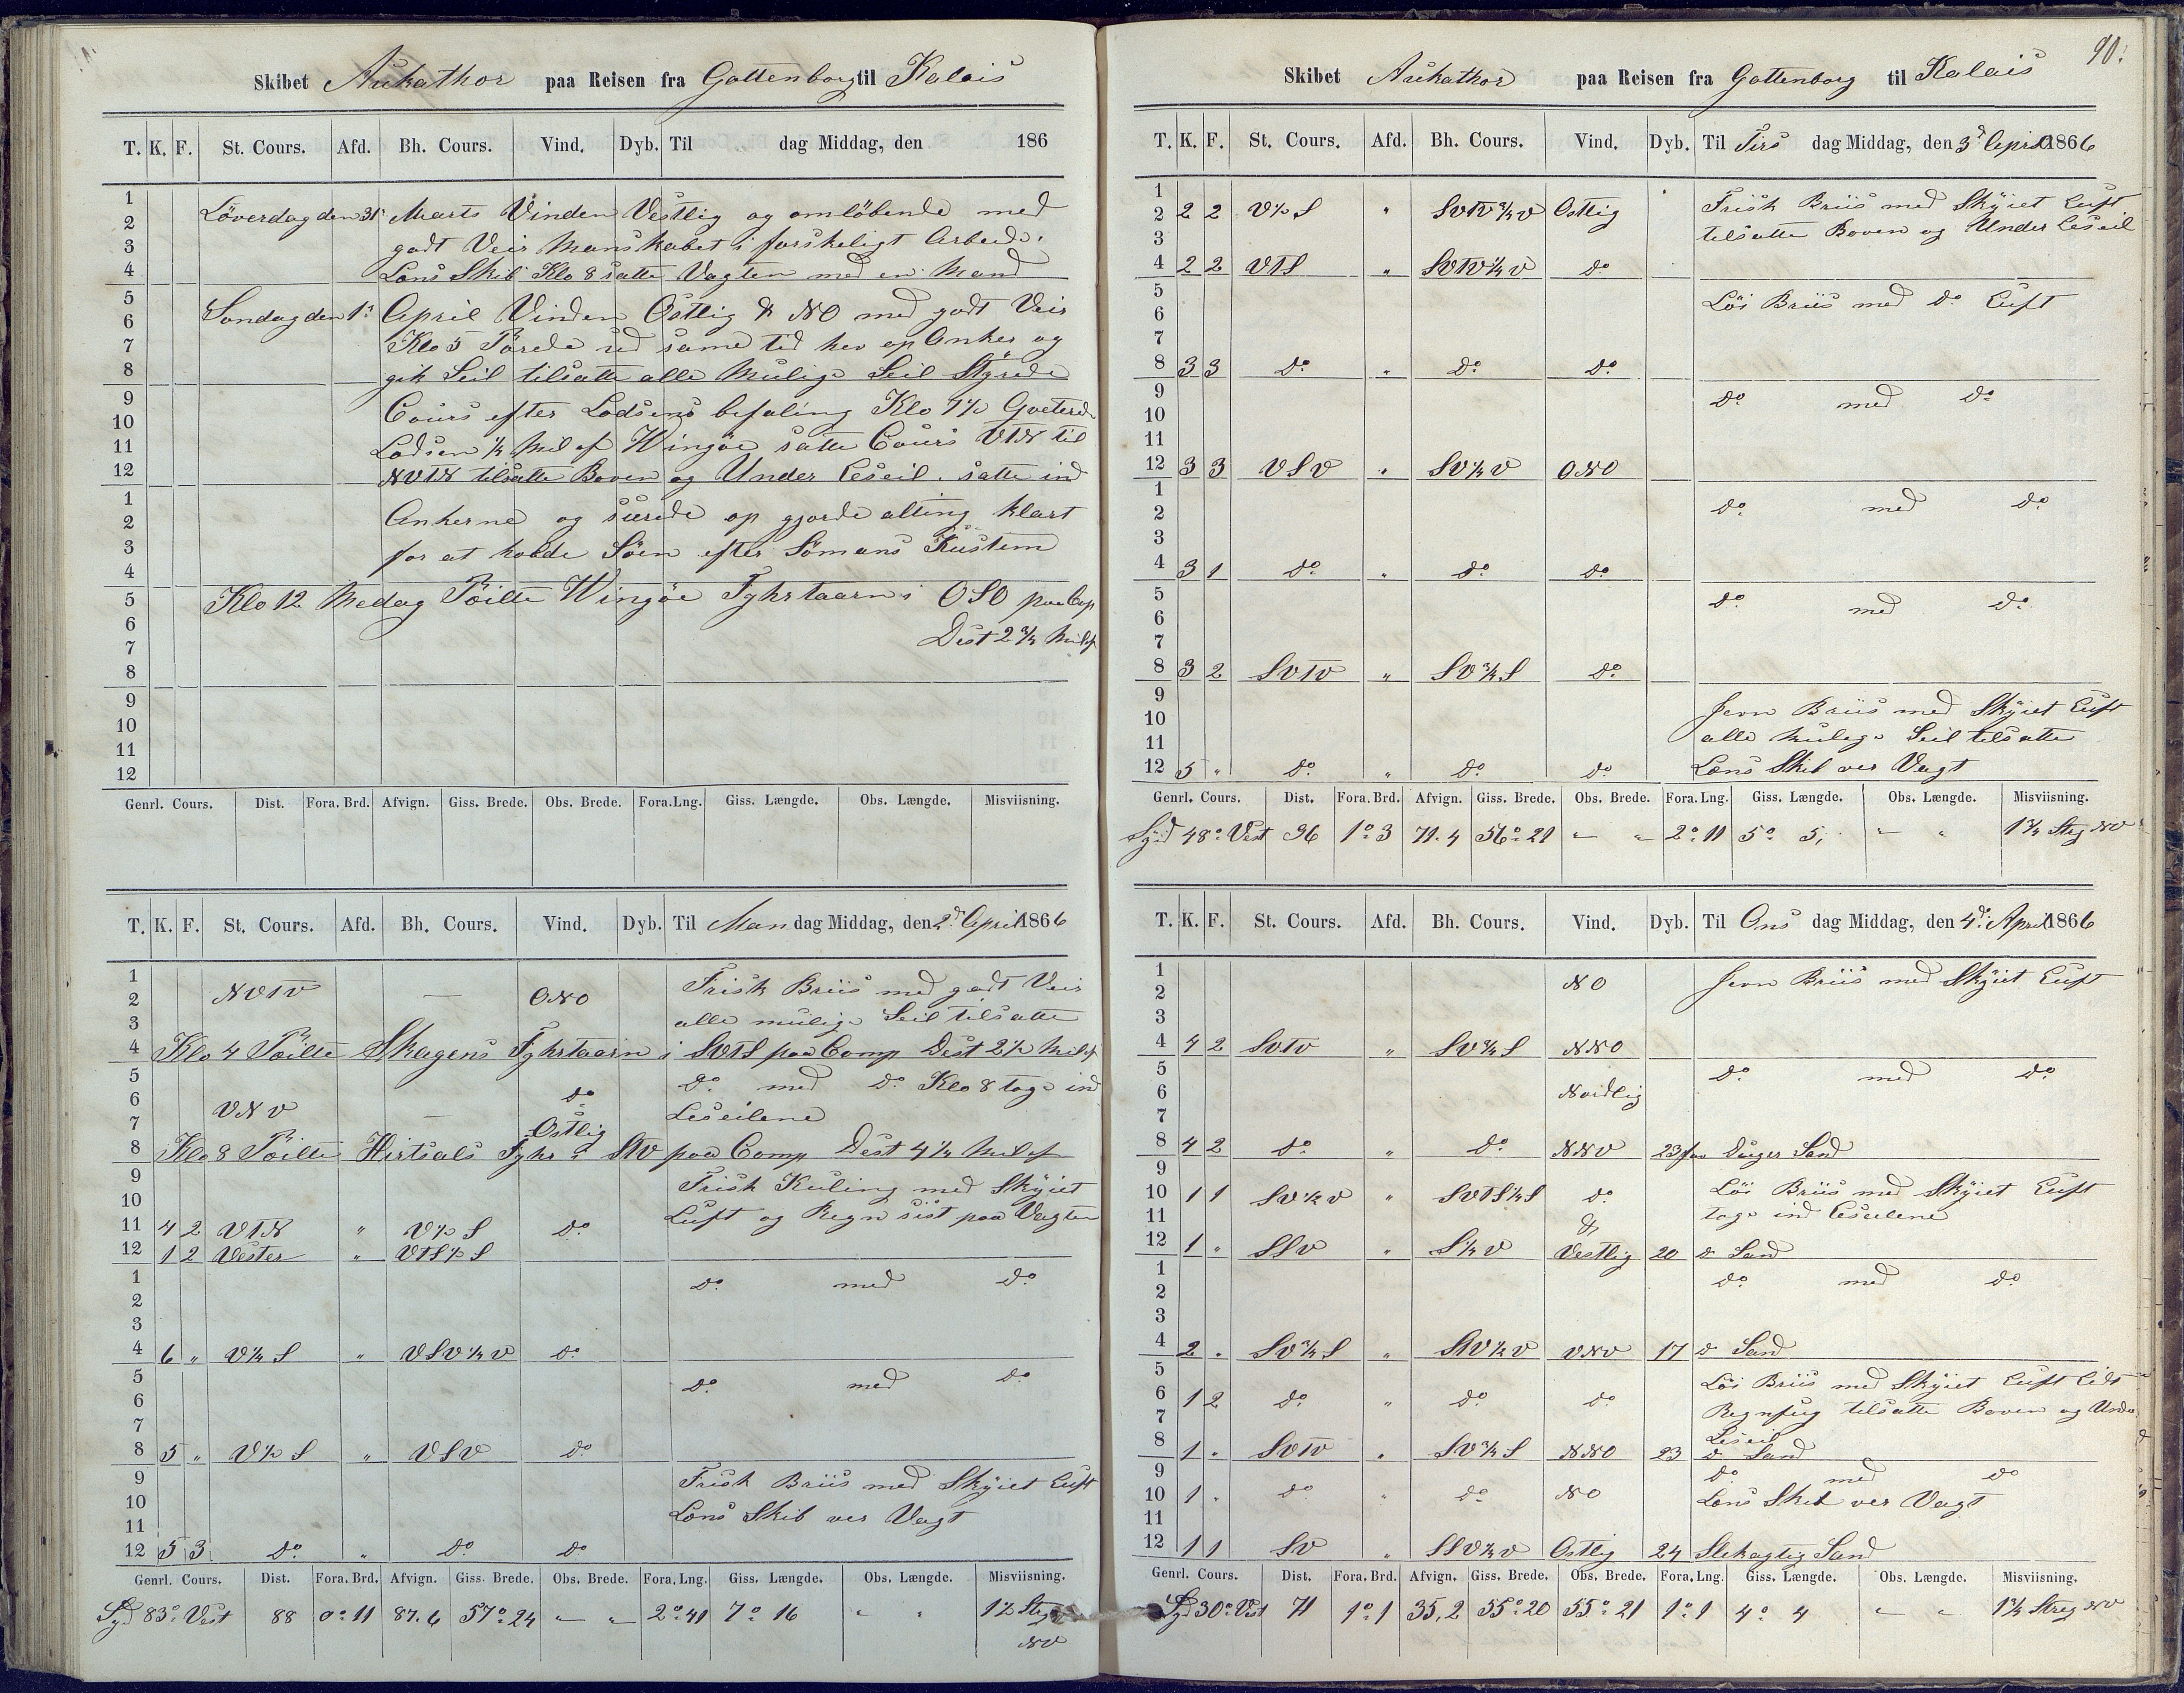 Skibet Aukathor paa Reisen fra Gottenborg til Kalais
T. K. F. St. Cours. Afd. Bh. Cours. Vind. Dyb. Til dag Middag, den 186
1
2 Löverdag den 31 Marts Vinden Vestlig og omlöbende med
3 godt Veir Manskabet i forskeligt Arbeide.
4 Lens Skib Klo 8 satte Vagten med en Mand
5 Sondag den 1 April Vinden Ostlig & NO med godt Veir
6
7 Klo 5 Törede ud same tid hev op Anker og
8 gik Seil tilsatte alle Mulige Seil Styrede
9 Cours efter Lodsens befaling Klo 7½
10
11 Lodsen ¼ Mil af Wingöe satte Cours VTN til
12 NVTN tilsatte Boven og Under Leseil. satte ind
1 Ankerne og surede op gjorde alting klart
2
3 for at holde Söen efter Sömans Kustem
4
5 Klo 12 Medag Peilte Wingöe Fyhrtaarn i OSO paa Cop
6 Dist 2¾ Mil af
7
8
9
10
11
12
Genrl. Cours. Dist. Fora. Brd. Afvign. Giss. Brede. Obs. Brede. Fora. Lng. Giss. Længde. Obs. Længde. Misviisning.
T. K. F. St. Cours. Afd. Bh. Cours. Vind. Dyb. Til Man dag Middag, den 2d April 1866
1 Frisk Briis med godt Veir
2 NVTV — ONO
3 alle mulige Seil tilsatte
4 Klo 4 Peilte Skagens Fyhrtaarn i SVTS paa Comp Dist 2½ Mil af
5 do med do Klo 8 toge ind
6 VNV — do
7 Ostlig Leseilene
8 Klo 8 Peilte Hirtsals Fyhr i StV paa Comp Dest 4¼ Mil af
9 Frisk Kuling med Skyiet
10
11 4 2 VTN " V½S do Luft og Regn sist paa Vagten
12 1 2 Vester " VTS½S
1 do med do
2
3
4 6 " V¼S " VSV¼V do
5 do med do
6
7
8 5 " V½S " VSV do
9 Frisk Briis med Skyiet Luft
10
11 Lens Skib ver Vagt
12 5 3 do " do do
Genrl. Cours. Dist. Fora. Brd. Afvign. Giss. Brede. Obs. Brede. Fora. Lng. Giss. Længde. Obs. Længde. Misviisning.
Syd 83° Vest 88 0° 11 87.6 57° 24 " " 2° 41 7° 16 " " 1½ Streg
NV
90.
Skibet Aukathor paa Reisen fra Gottenborg til Kalais
T. K. F. St. Cours. Afd. Bh. Cours. Vind. Dyb. Til Tirs dag Middag, den 3d April 1866
1 Frisk Briis med Skyiet Luft
2 2 2 V½S " SVTV¾V Ostlig
3 tilsatte Boven og Under Leseil
4 2 2 VTS " SVTV¼V do
5 Löi Briis med do Luft
6
7
8 3 3 do " do do
9 do med do
10
11
12 3 3 VSV " SV¼V ONO
1 do med do
2
3
4 3 1 do " do do
5 do med do
6
7
8 3 2 SVTV " SV¾S do
9 Jevn Briis med Skyiet Luft
10
11 alle Mulige Seil tilsatte
12 5 " do " do do Lens Skib ver Vagt
Genrl. Cours. Dist. Fora. Brd. Afvign. Giss. Brede. Obs. Brede. Fora. Lng. Giss. Længde. Obs. Længde. Misviisning.
Syd 48° Vest 96 1° 3 71.4 56° 21 " " 2° 11 5° 5, " " 1¾ Streg NV
T. K. F. St. Cours. Afd. Bh. Cours. Vind. Dyb. Til Ons dag Middag, den 4de April 1866
1 NO Jevn Briis med Skyiet Luft
2
3
4 4 2 SVTV " SV¾S NNO
5 do med do
6 Nordlig
7
8 4 2 do " do NNV 23 fav Sand
9 Löi Briis med Skyiet Luft
10 1 1 SV¼V " SVTS¼S do
11 & toge ind Leseilene
12 1 " SSV " S¼V Vestlig 20 d Sand
1 do med do
2
3
4 2 " SV¾S " StV¼V VNV 17 d Sand
5 Löi Briis med Skyiet Luft Lidt
6 1 2 do " do do
7 Regnfug tilsatte Boven og Under
8 1 " SVTV " SV¾S NNO 23 Leseil d Sand
9 do med do
10 1 " do " do NO Lens Skib ver Vagt
11
12 1 1 SV " SSV¼V Ostlig 24 Sand
Genrl. Cours. Dist. Fora. Brd. Afvign. Giss. Brede. Obs. Brede. Fora. Lng. Giss. Længde. Obs. Længde. Misviisning.
Syd 30° Vest 71 1° 1 35,2 55° 20 55° 21 1° 1 4° 4 " " 1¾ Streg NV